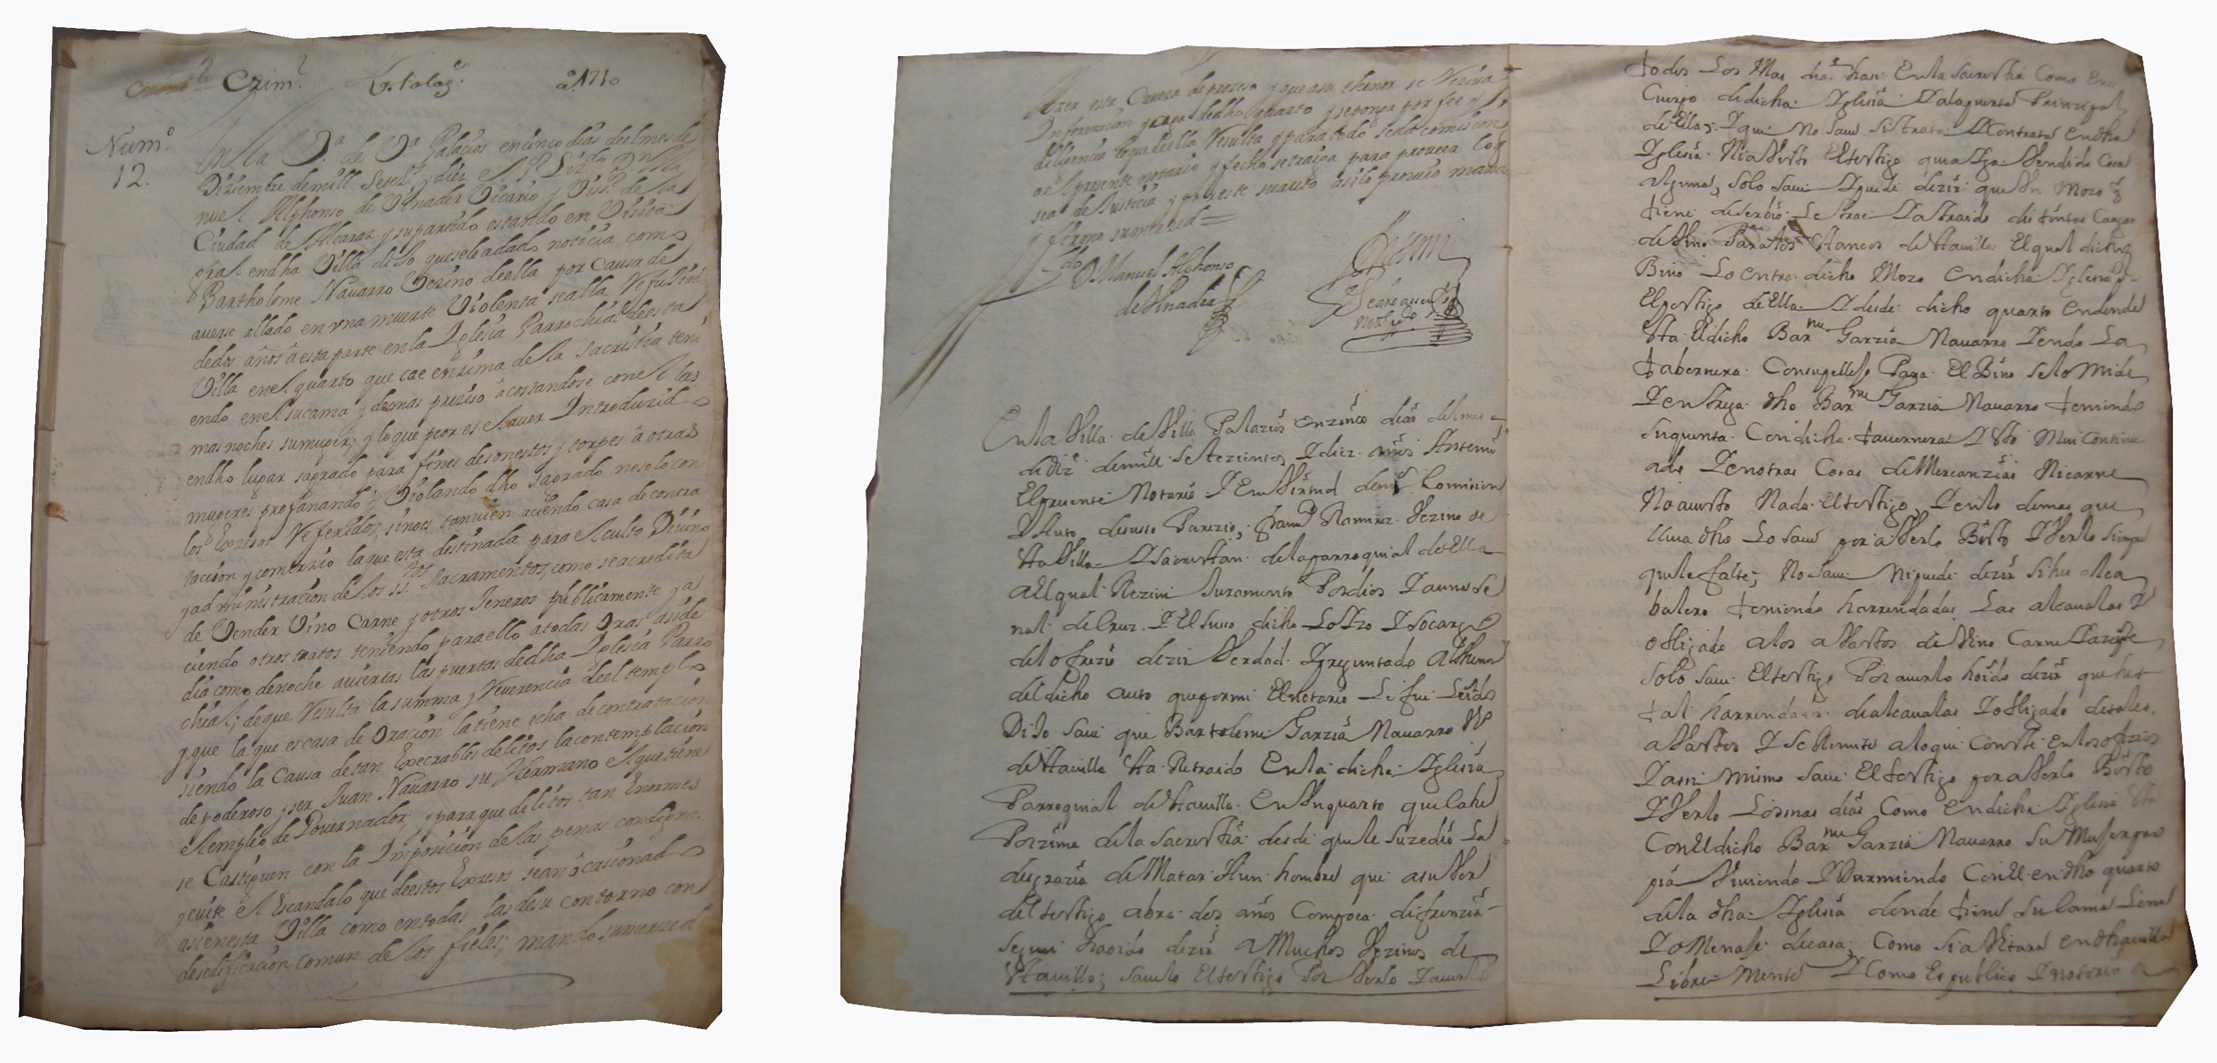 Crim.l V.ª Palaç.s a. 1710
Num.º
12.
En la V.ª de V.ª Palacios en cinco dias del mes de
Diziembre de mill Setez.s y diez el S.r Liz.do D.n Ma
nuel Alphonso de Vinader Vicario y Visit.r de la
Ciudad de Alcaraz y su partido estando en Visita
en dha Villa dijo que se le a dado noticia como
Bartholome Navarro Vezino de ella por Causa de
averse allado en una muerte Violenta se alla Refujiado
de dos años a esta parte en la Iglesia Parrochial de esta
Villa en el quarto que cae enzima de la sacristia teni
endo en el su cama y demas preziso acostandose con el las
mas noches su muger, y lo que peor es aver Introduzido
en dho lugar sagrado para fines desonestos y torpes a otras
mugeres profanando y Violando dho Sagrado no solo con
los Exzesos Referidos, sino es tanvien aciendo casa de contra
tacion y comerzio la que esta destinada para el culto Divino
y administracion de los ss.tos Sacramentos, como se acredita
de Vender Vino Carne y otros Jeneros publicamente y a
ciendo otros tratos teniendo para ello a todas Oras asi de
dia como de noche aviertas las puertas de dha Iglesia Parro
chial; de que Resulta la summa yRreverencia de el templo
y que la que es casa de Oracion la tiene echa de contratacion
siendo la Causa de tan Execrables delitos la contemplacion
de poderoso y ser Juan Navarro su Hermano el que tiene
el empleo de Governador; y para que delitos tan Enormes
se Castiguen con la Imposicion de las penas condignas
y evite el Escandalo que de estos Exzesos sean ocasionado
asi en esta Villa como en todas las de su contorno con
desedificacion comun de los fieles; mando su merzed
azer esta Cavera de prozeso y que a su thenor se Reziva
Informacion y de dho quarto y se ponga por fee y
diligencia lo que de ella Resulta y para todo se da comision
a el presente notario y fecho se traiga para proveer lo q
sea de Justicia y por este su auto asi lo proveio mando
y firmo su merzed =
L.do D. Manuel Alphonso
de Vinader
Ante mi
Not.rio
En la Villa de Villa Palazios en zinco dias del mes
de diz.e de mill Setezientos y diez años Ante mi
El presente Notario y En Virtud de mi Comision
y Auto de suso Parezio Ramirez Vezino de
esta Villa y Sacristan de la parroquial de Ella
a el qual Rezivi Juramento Por dios y a una se
ñal de Cruz y El suso dicho lo Izo y so cargo
del ofrezio dezir Verdad y preguntado al thenor
del dicho auto que por mi El notario le fue Leido
Dijo save que Bartolome Garzia Navarro Vº
de esta villa esta Retraido En la dicha Iglesia
Parroquial de esta villa En Un quarto que cahe
Por zima de la Sacristia desde que le suzedio La
desgrazia de Matar a Un hombre que a su Ver
del testigo abra dos años Compoca difrenzia
segun ha oido dezir a Muchos Vezinos de
esta villa; savelo El testigo Por Verlo y averlo
todos Los Mas dias estar En la Sacristia Como En el
Cuerpo de dicha Iglesia y a la puerta Prinzipal
de Ella; y que No save si trata y Contrata en dha
Iglesia Ni a Visto El testigo que aiga Vendido Cosa
alguna, solo save y puede dezir que Un Mozo q
tiene de serbizio Le trae y a traido distintas Cargas
de Vino Para los estancos de esta villa El qual dicho
Bino Lo entra dicho Mozo en dicha Iglesia por
El postigo de Ella y desde dicho quarto en donde
esta El dicho Bar.me Garzia Navarro yendo La
tabernera Con su pellejo Para El Bino se lo Mide
y entrega dho Bar.me Garzia Navarro teniendo
su quenta Con dicha tavernera y esto Mui Contine
ado y en otras Cosas de Mercanzias Ni carne
No a visto Nada El testigo, y en lo demas que
lleva dho Lo save por aVerlo Bisto y Verlo siempre
que le falte; No save Ni puede dezir si hes o lea
balero teniendo harrendadas Las alcavalas y
obligado a los abastos de Vino Carne y azeite
solo save El testigo Por averlo hoido dezir que hes
tal harrendador de alcavalas y obligado de tales
abastos y se Remite a lo que Conste en los ofizios
y assi mismo save El testigo por aVerlo Bisto
y Verlo Los mas dias Como en dicha Iglesia esta
Con El dicho Bar.me Garzia Navarro Su Muger pro
pia Viviendo y Durmiendo Con El en dho quarto
de la dha Iglesia donde tiene Su Cama
y oMenaje de casa; Como si aVitara en dha villa
Libre Mente y Como Es publico y notorio a